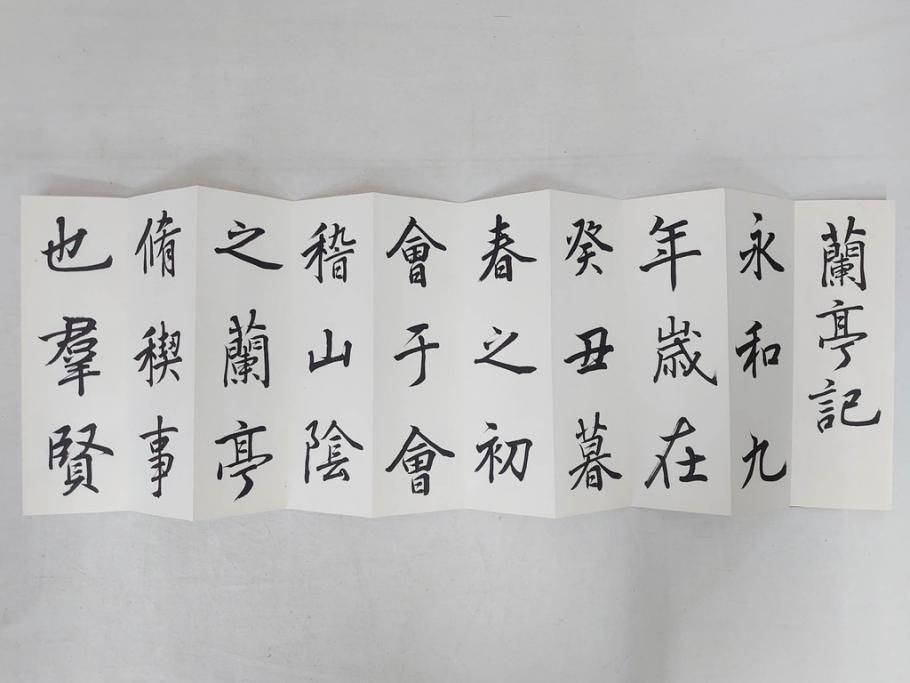 蘭亭記
永和九
年歳在
癸丑暮
春之初
會于會
稽山陰
之蘭亭
脩稧事
也羣賢